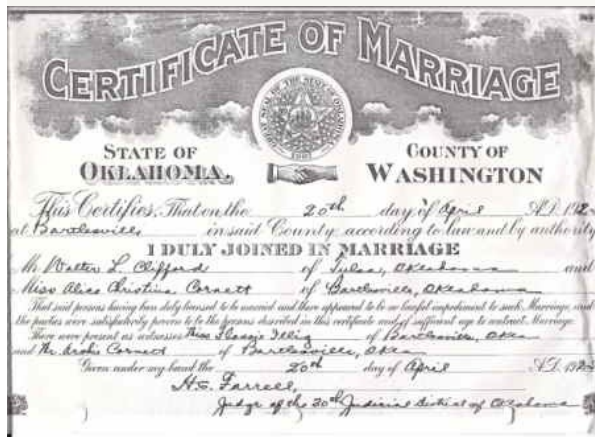 CERTIFICATE OF MARRIAGE
GREAT SEAL OF THE STATE OF OKLAHOMA
1907
STATE OF OKLAHOMA.
COUNTY OF WASHINGTON
This Certifies, That on the 20th day of April A.D. 192
at Bartlesville in said County according to law and by authority
I DULY JOINED IN MARRIAGE
Mr Walter L. Clifford of Tulsa, Oklahoma and
Miss Alice Christina Cornett of Bartlesville, Oklahoma
That said persons having been duly licensed to be married and there appeared to be no lawful impediment to such Marriage, and
the parties were satisfactorily proven to be the persons described in this certificate and of sufficient age to contract Marriage.
There were present as witnesses Miss of Bartlesville, Okla
and Mr. Cornett of Bartlesville, Okla
Given under my hand the 20th day of April A.D. 192
H.C. Farrell,
Judge of the 30th Judicial District of Oklahoma